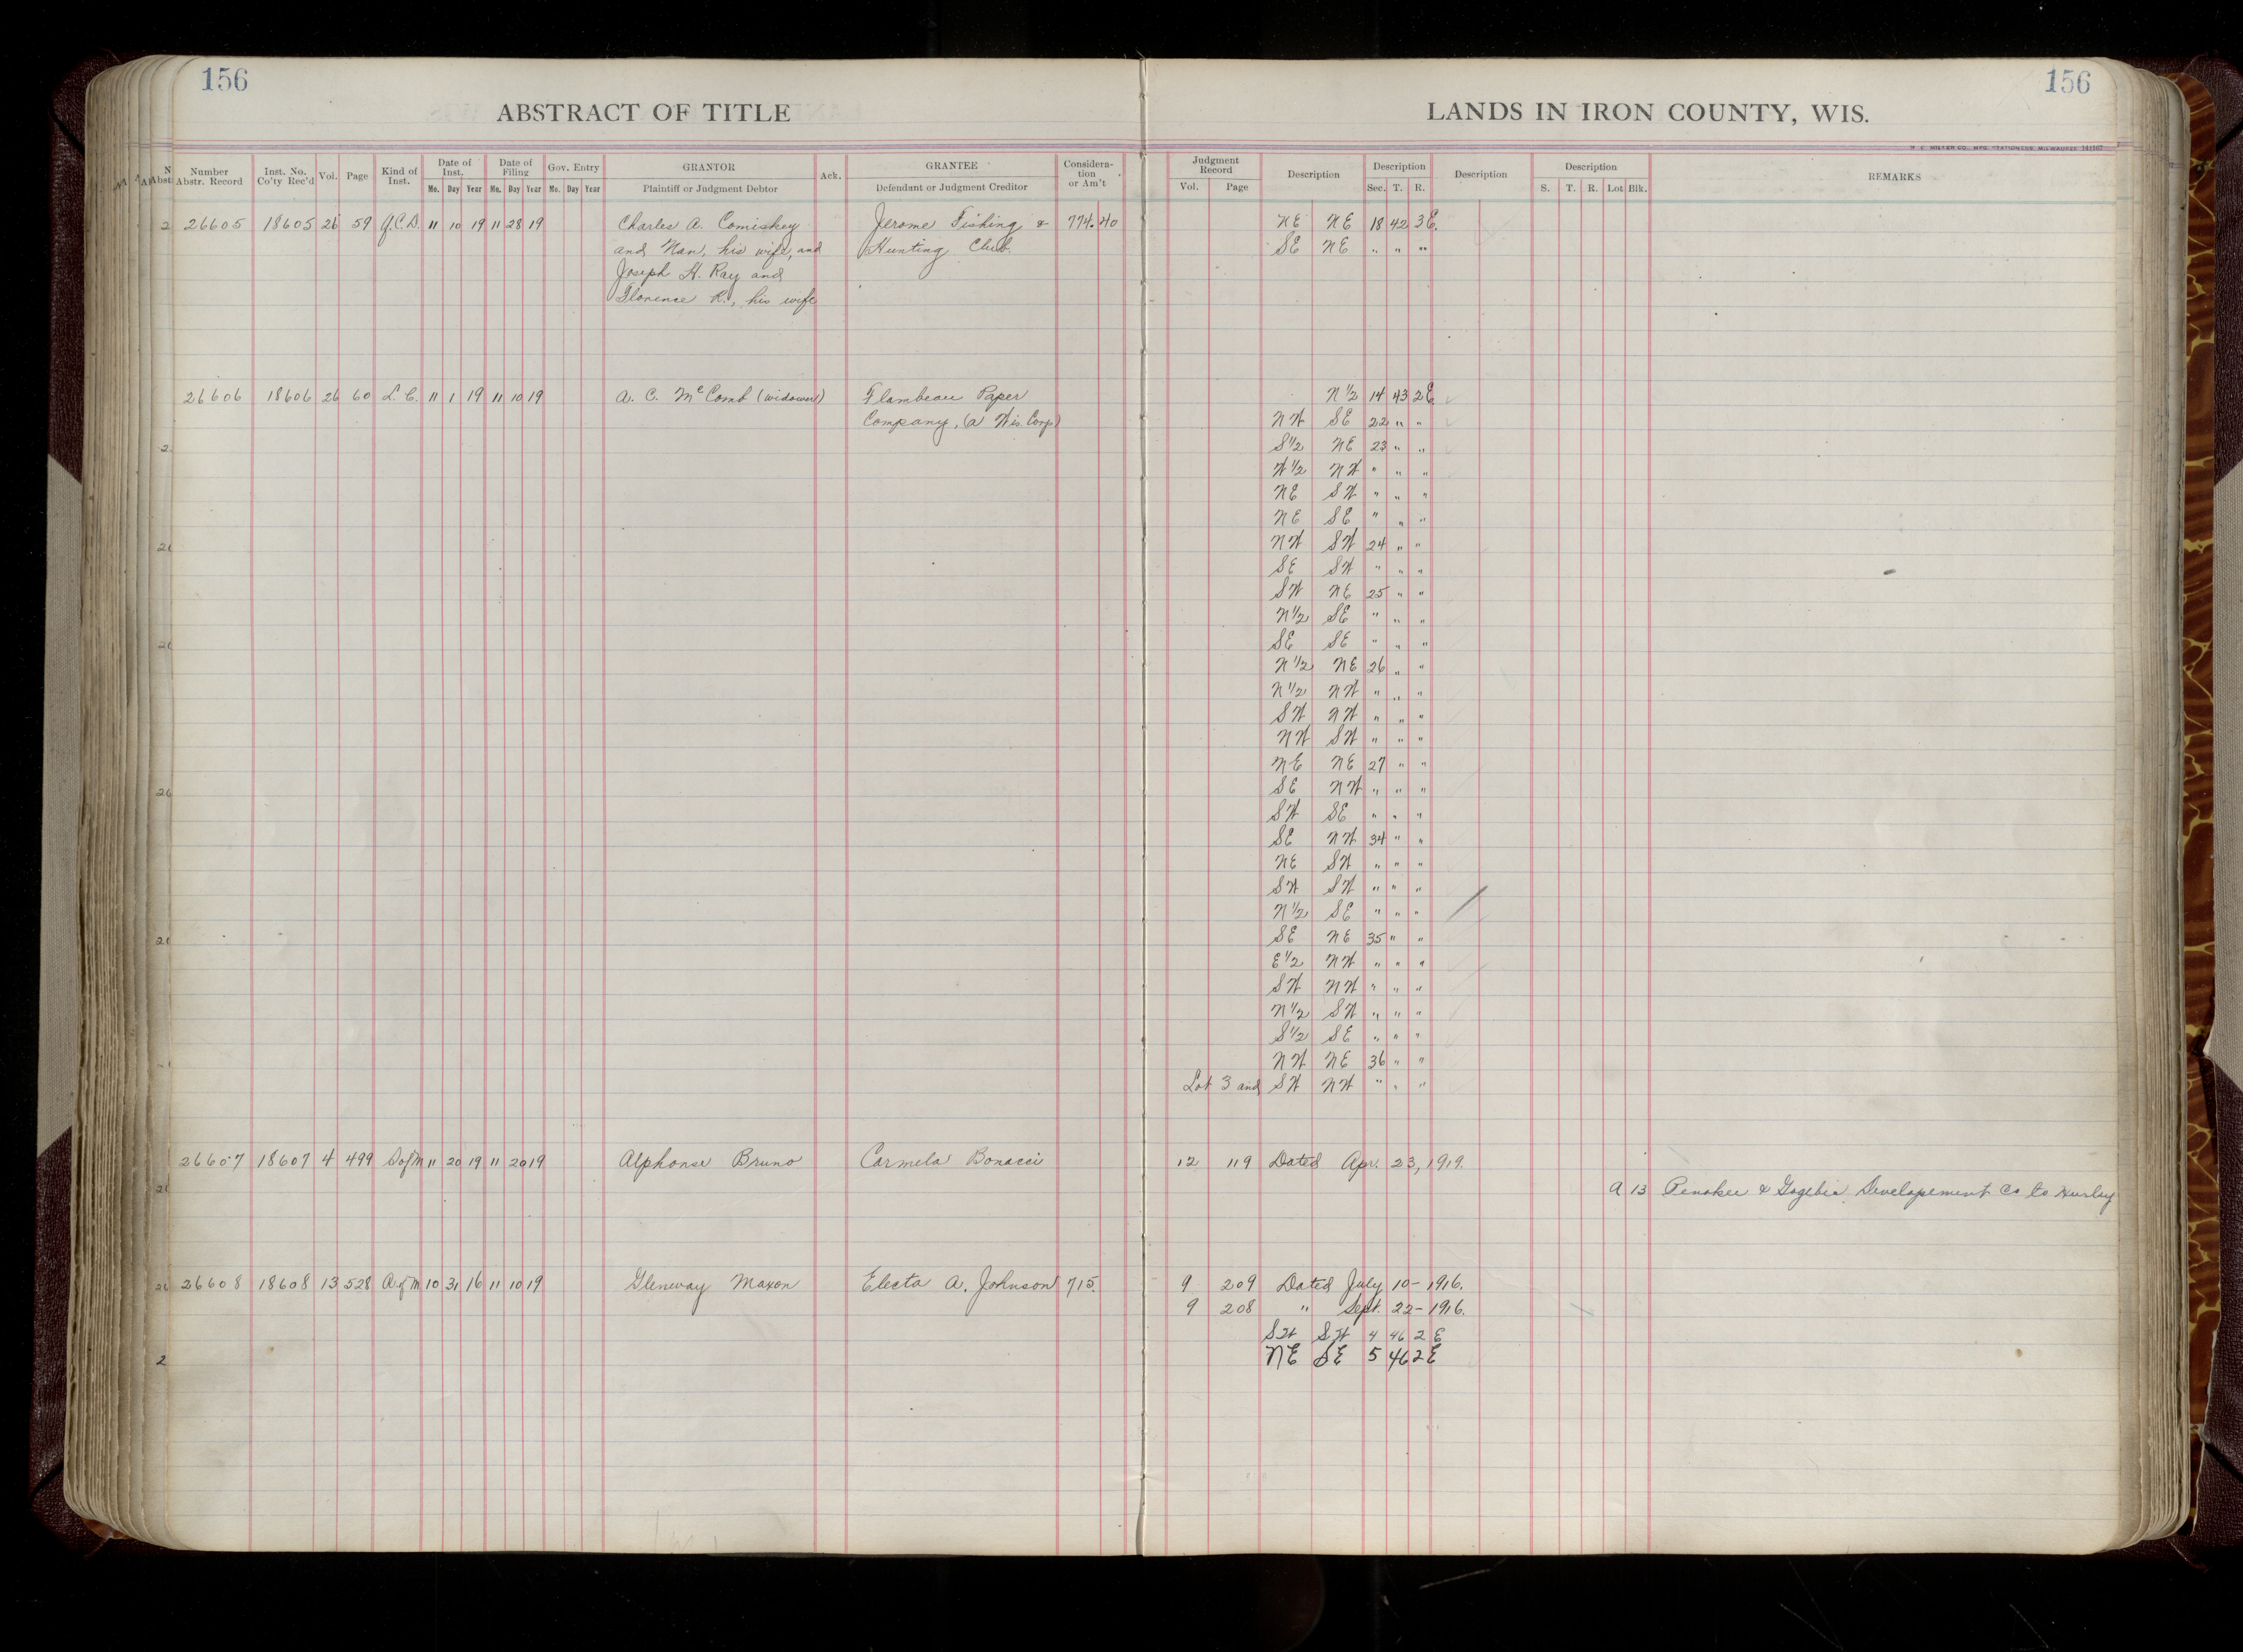 156
156
ABSTRACT OF TITLE
LANDS IN IRON COUNTY, WIS.
Number Abstr. Record | Inst. No. Co'ty Rec'd | Vol. | Page | Kind of Inst. | Date of Inst. Mo. Day Year | Date of Filing Mo. Day Year | Gov. Entry Mo. Day Year | GRANTOR Plaintiff or Judgment Debtor | Ack. | GRANTEE Defendant or Judgment Creditor | Consideration or Am't | Judgment Record Vol. Page | Description | Description Sec. T. R. | Description | Description S. T. R. Lot Blk. | REMARKS
26605 18605 26 59 Q.C.D. 11 10 19 11 28 19 Charles A. Comiskey Jerome Fishing & 774.40 NE NE 18 42 3E.
and Nan, his wife, and Hunting Club. SE NE " " "
Joseph H. Ray and
Florence R., his wife
26606 18606 26 60 L.C. 11 1 19 11 10 19 A. C. McComb (widower) Flambeau Paper N 1/2 14 43 2E.
Company, (a Wis. Corp) NW SE 22 " "
S 1/2 NE 23 " "
W 1/2 NW " " "
NE SW " " "
NE SE " " "
NW SW 24 " "
SE SW " " "
SW NE 25 " "
N 1/2 SE " " "
SE SE " " "
N 1/2 NE 26 " "
N 1/2 NW " " "
SW NW " " "
NW SW " " "
NE NE 27 " "
SE NW " " "
SW SE " " "
SE NW 34 " "
NE SW " " "
SW SW " " "
N 1/2 SE " " "
SE NE 35 " "
E 1/2 NW " " "
SW NW " " "
N 1/2 SW " " "
S 1/2 SE " " "
NW NE 36 " "
Lot 3 and SW NW " " "
26607 18607 4 499 S of M 11 20 19 11 20 19 Alphonse Bruno Carmela Bonacci 12 119 Dated Apr. 23, 1919.
A 13 Penokee & Gogebic Developement Co to Hurley
26608 18608 13 528 A of M. 10 31 16 11 10 19 Gleneway Maxon Electa A. Johnson 715. 9 209 Dated July 10-1916.
9 208 " Sept. 22-1916.
SW SW 4 46 2 E
NE SE 5 46 2 E